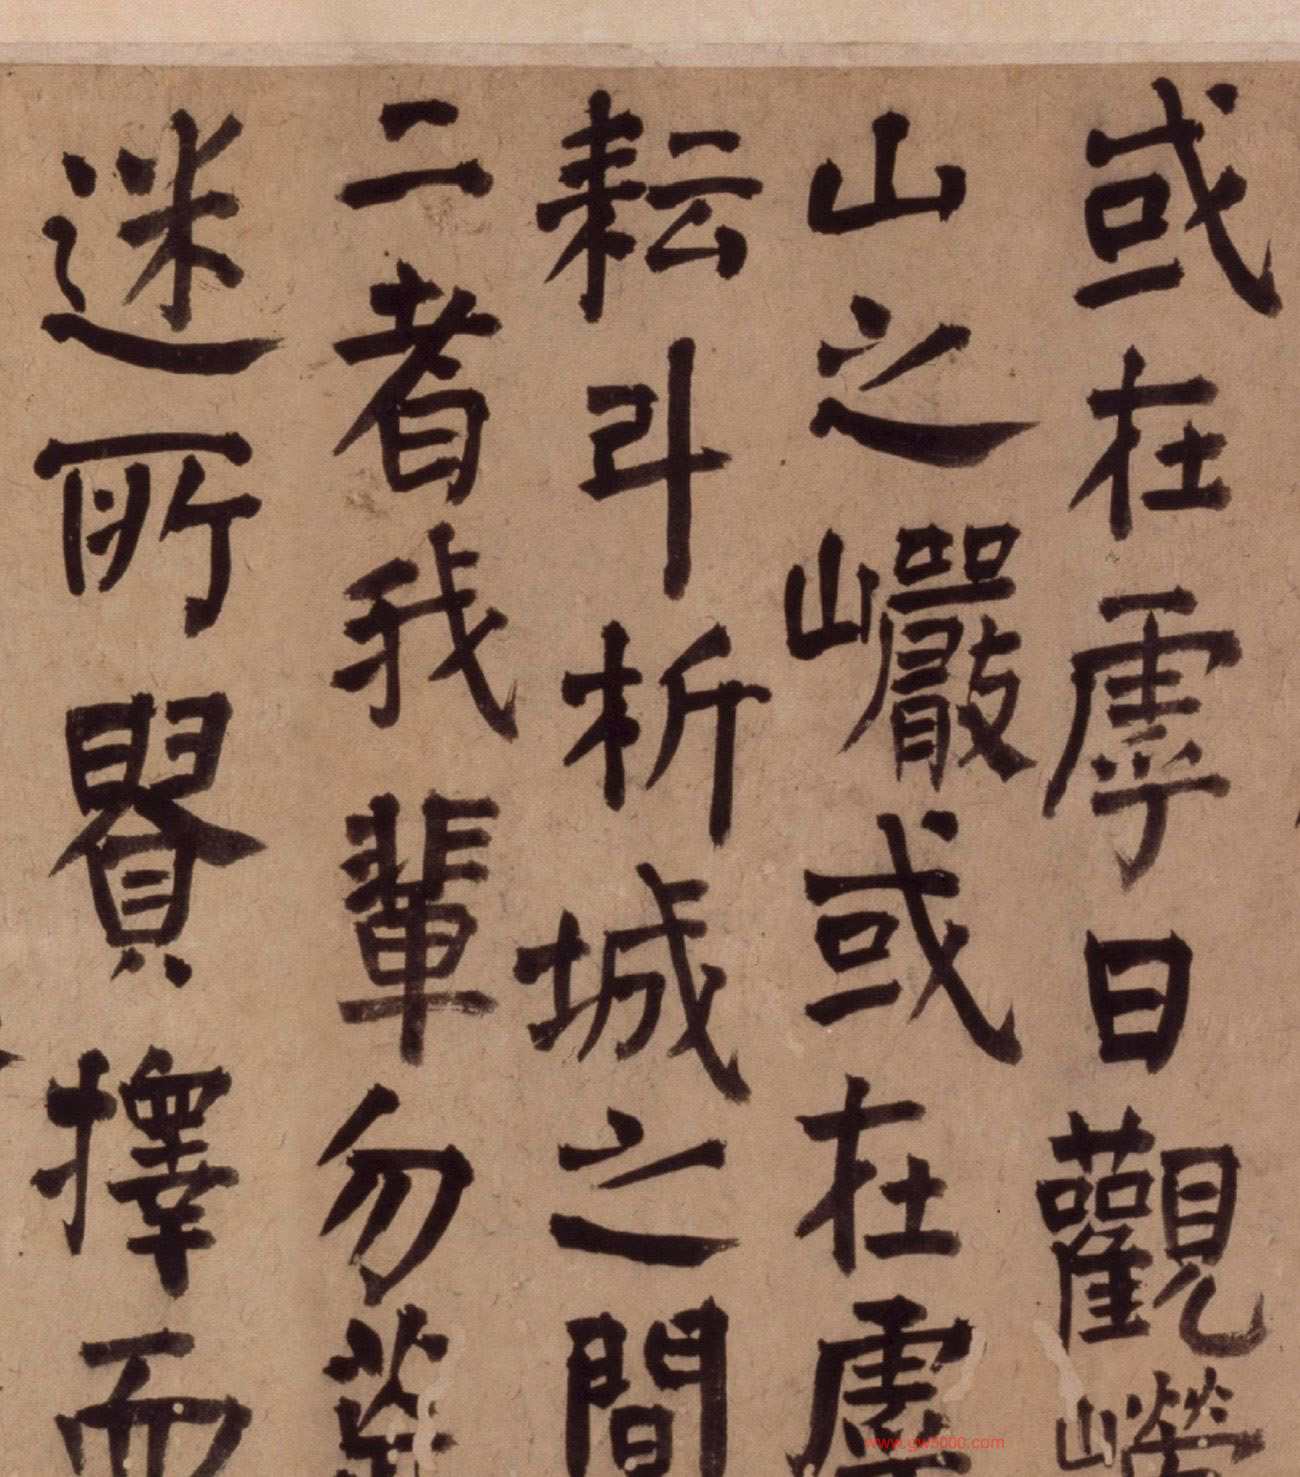 或在虖日觀
山之巗或在虖
耘斗析城之間
二者我輩勿
迷所擇而
www.gw5000.com